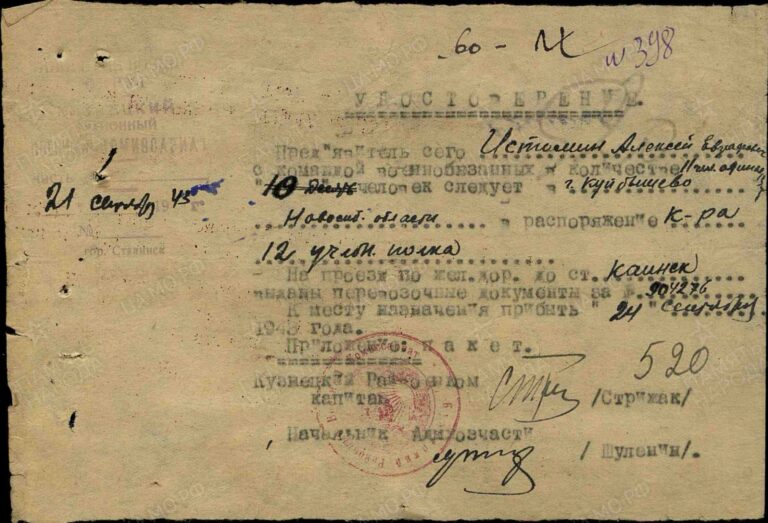 60 - IX
№ 398
УДОСТОВЕРЕНИЕ.
Пред"явитель сего Истомин Алексей
с командой военнообязанных в количестве 11 чел.
"10" человек следует в г. Куйбышево
21 сентября 43
Новосиб. области в распоряжение К-ра
№
гор. Сталинск
12 учебн. полка
На проезд по жел.дор. до ст. Каинск
выданы перевозочные документы за № 904276
К месту назначения прибыть "24" сентября
1943 года.
Приложение: пакет.
520
Кузнецкий Райвоенком
капитан /Стрижак/
Начальник Админчасти
/ Шуленин/.